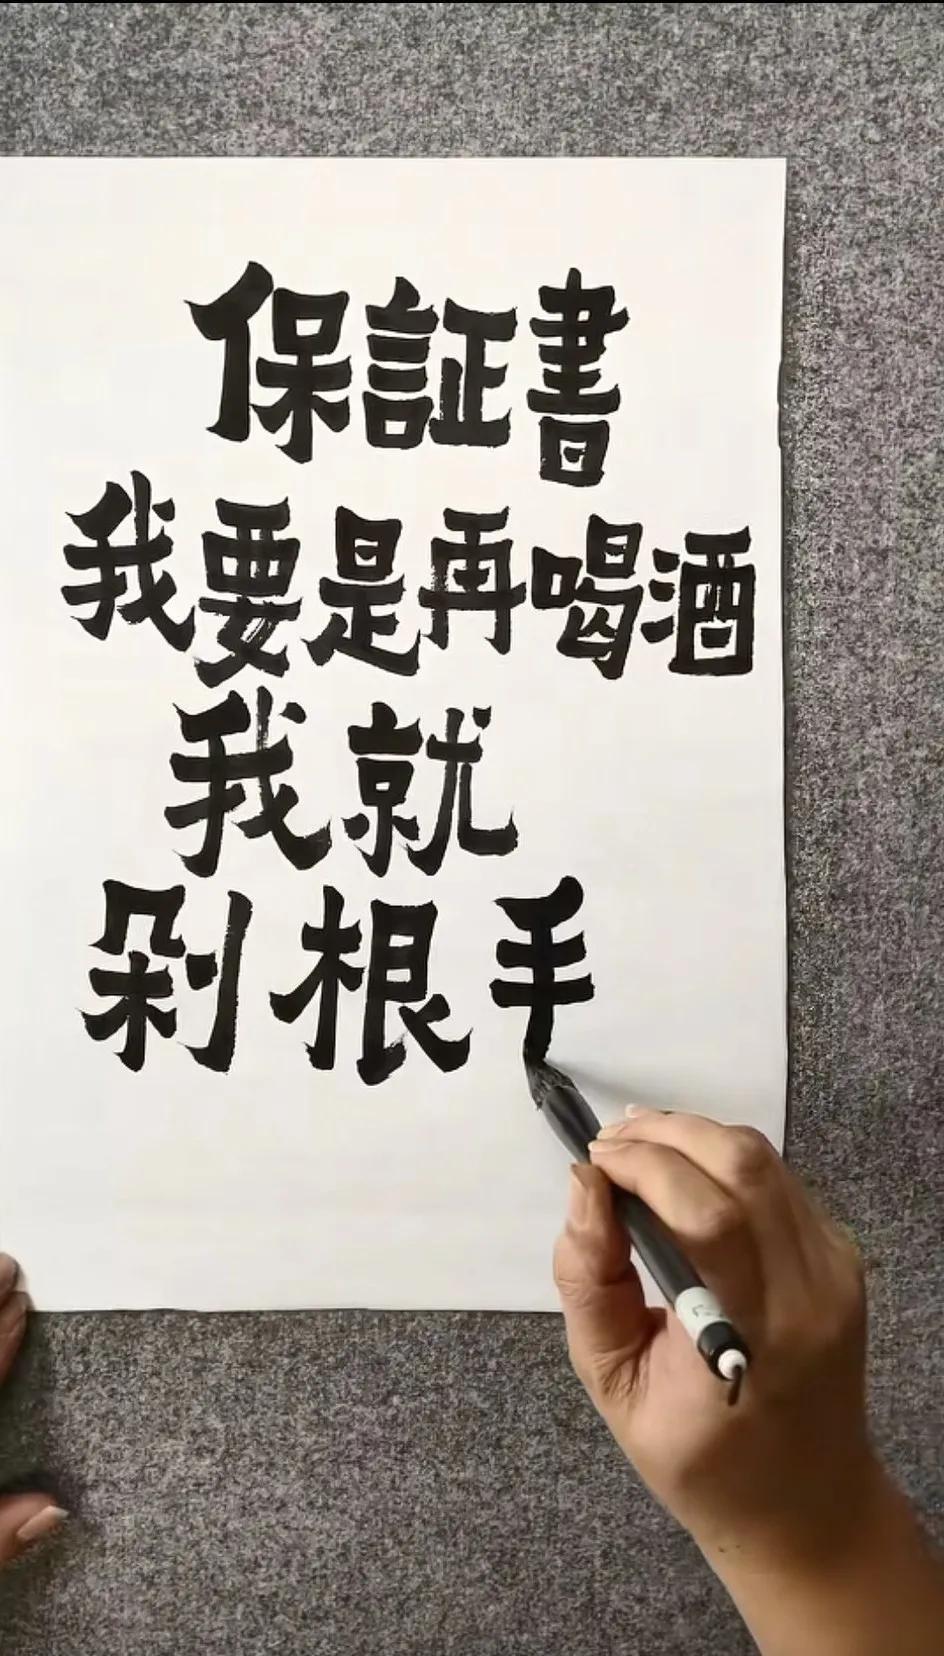 保証書
我要是再喝酒
我就
剁根手